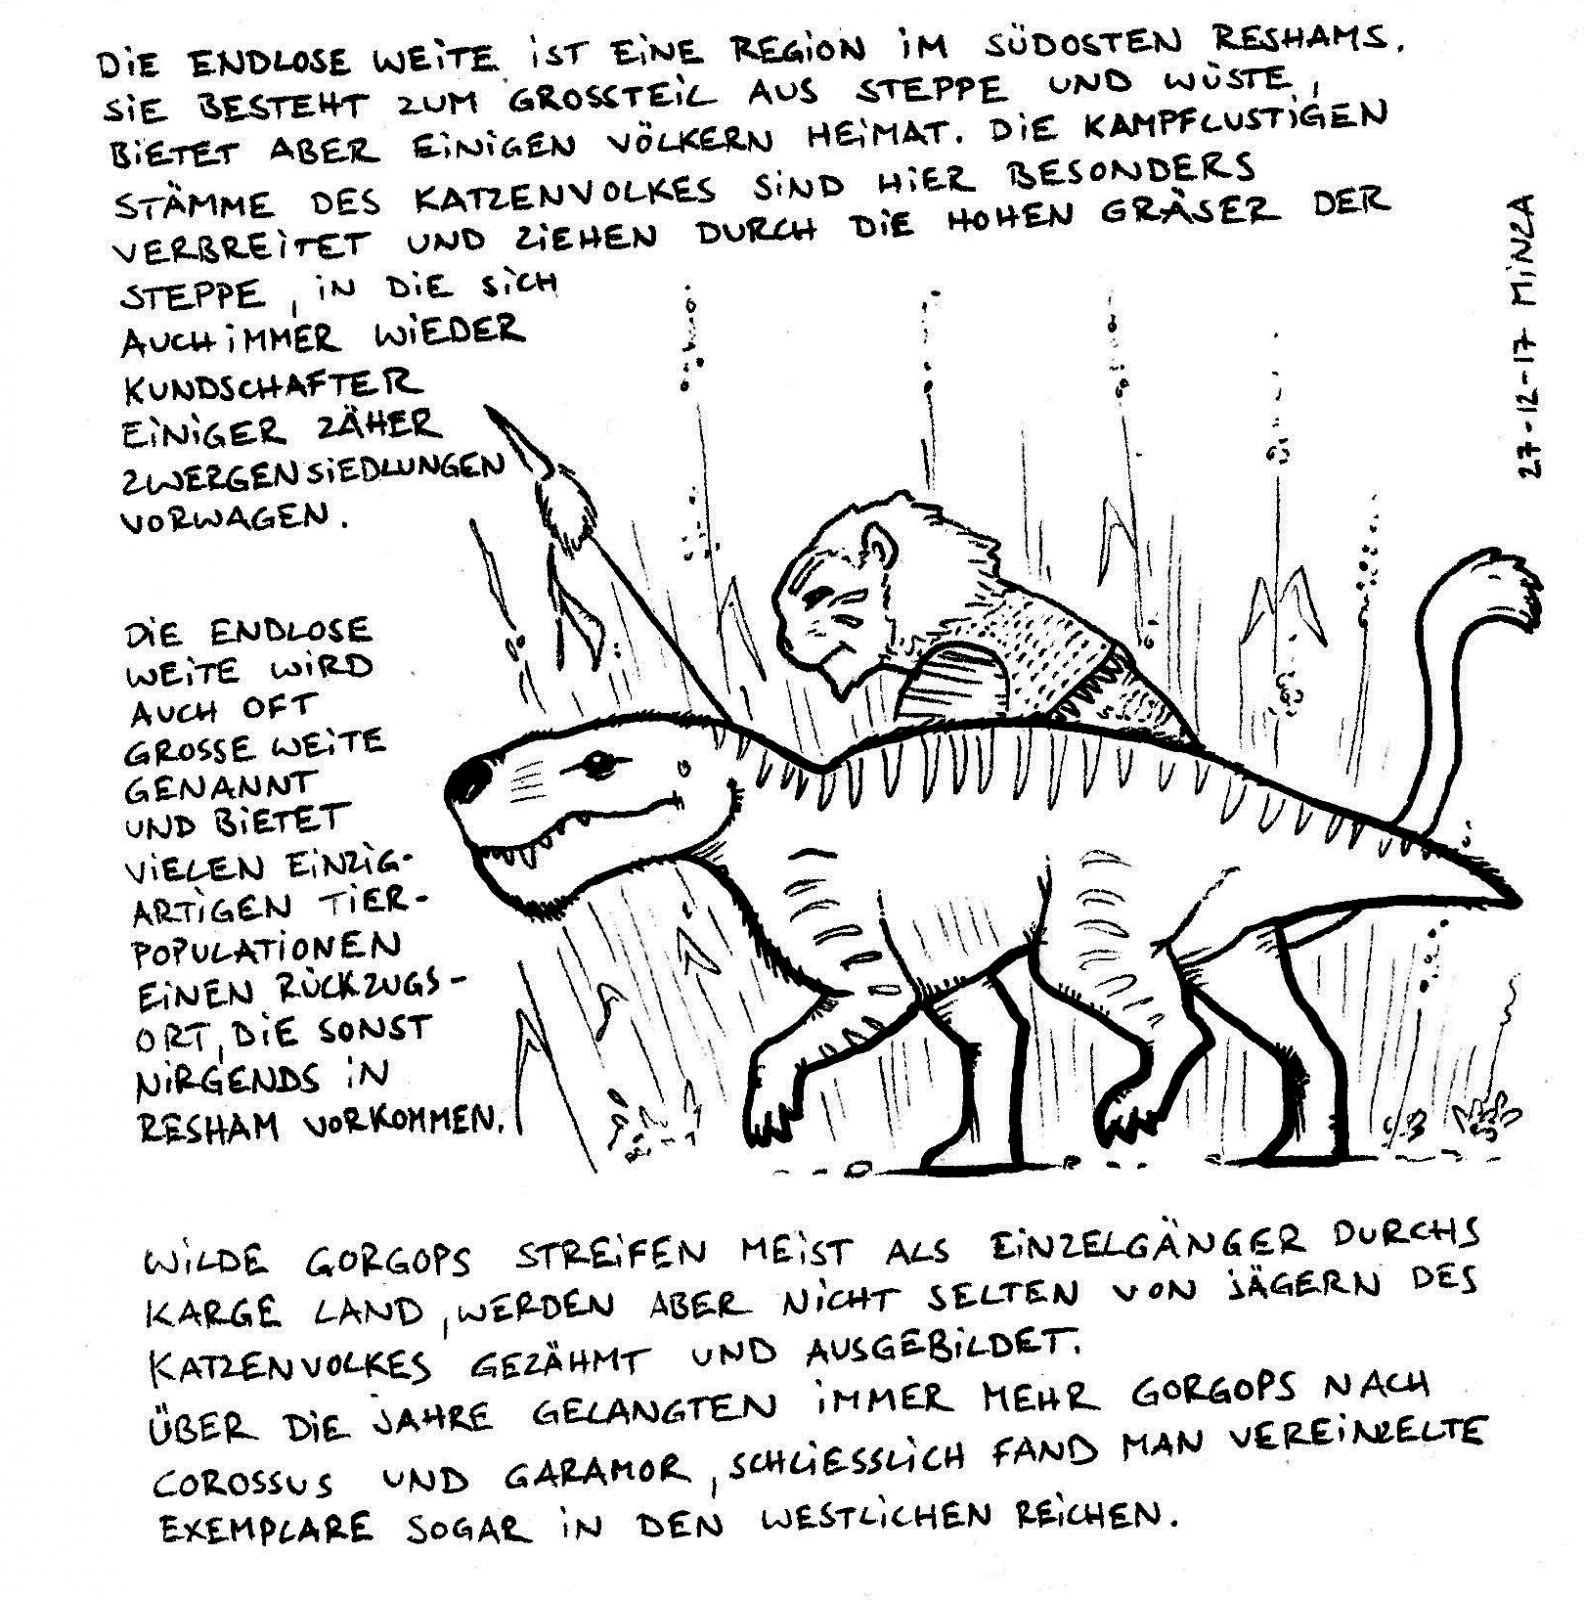 DIE ENDLOSE WEITE IST EINE REGION IM SÜDOSTEN RESHAMS.
SIE BESTEHT ZUM GROSSTEIL AUS STEPPE UND WÜSTE,
BIETET ABER EINIGEN VÖLKERN HEIMAT. DIE KAMPFLUSTIGEN
STÄMME DES KATZENVOLKES SIND HIER BESONDERS
VERBREITET UND ZIEHEN DURCH DIE HOHEN GRÄSER DER
STEPPE, IN DIE SICH
AUCH IMMER WIEDER
KUNDSCHAFTER
EINIGER ZÄHER
ZWERGENSIEDLUNGEN
VORWAGEN.
DIE ENDLOSE
WEITE WIRD
AUCH OFT
GROSSE WEITE
GENANNT
UND BIETET
VIELEN EINZIG-
ARTIGEN TIER-
POPULATIONEN
EINEN RÜCKZUGS-
ORT, DIE SONST
NIRGENDS IN
RESHAM VORKOMMEN.
27-12-17 MINZA
WILDE GORGOPS STREIFEN MEIST ALS EINZELGÄNGER DURCHS
KARGE LAND, WERDEN ABER NICHT SELTEN VON JÄGERN DES
KATZENVOLKES GEZÄHMT UND AUSGEBILDET.
ÜBER DIE JAHRE GELANGTEN IMMER MEHR GORGOPS NACH
COROSSUS UND GARAMOR, SCHLIESSLICH FAND MAN VEREINZELTE
EXEMPLARE SOGAR IN DEN WESTLICHEN REICHEN.